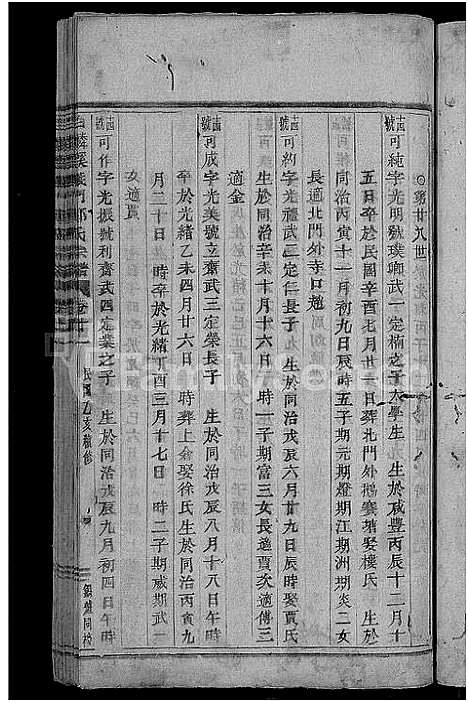 第廿八世
齒號可純字光明號璞卿武一定楠之子大學生 生於咸豐丙辰十二月十
五日 卒於民國辛酉七月廿一日葬北門外 娶樓氏 生於
同治丙寅十一月初九日辰時五子期元期燈期江期洲期炎二女
長適北門外寺口趙
號可約字光禮武三定仁長子 生於同治戊辰六月廿九日辰時娶賈氏
生於同治辛未十月十六日 時一子期富三女長適賈次適傅三
適金
號可成字光美號立齋武三定榮長子 生於同治戊辰八月十八日午時
卒於光緒乙未四月廿六日 時葬上 娶徐氏生於同治丙寅九
月二十日 時卒於光緒丁酉三月十七日 時二子期威期武一
女適賈
號可作字光振號利齋武四定業之子 生於同治戊辰九月初四日午時
民國乙亥